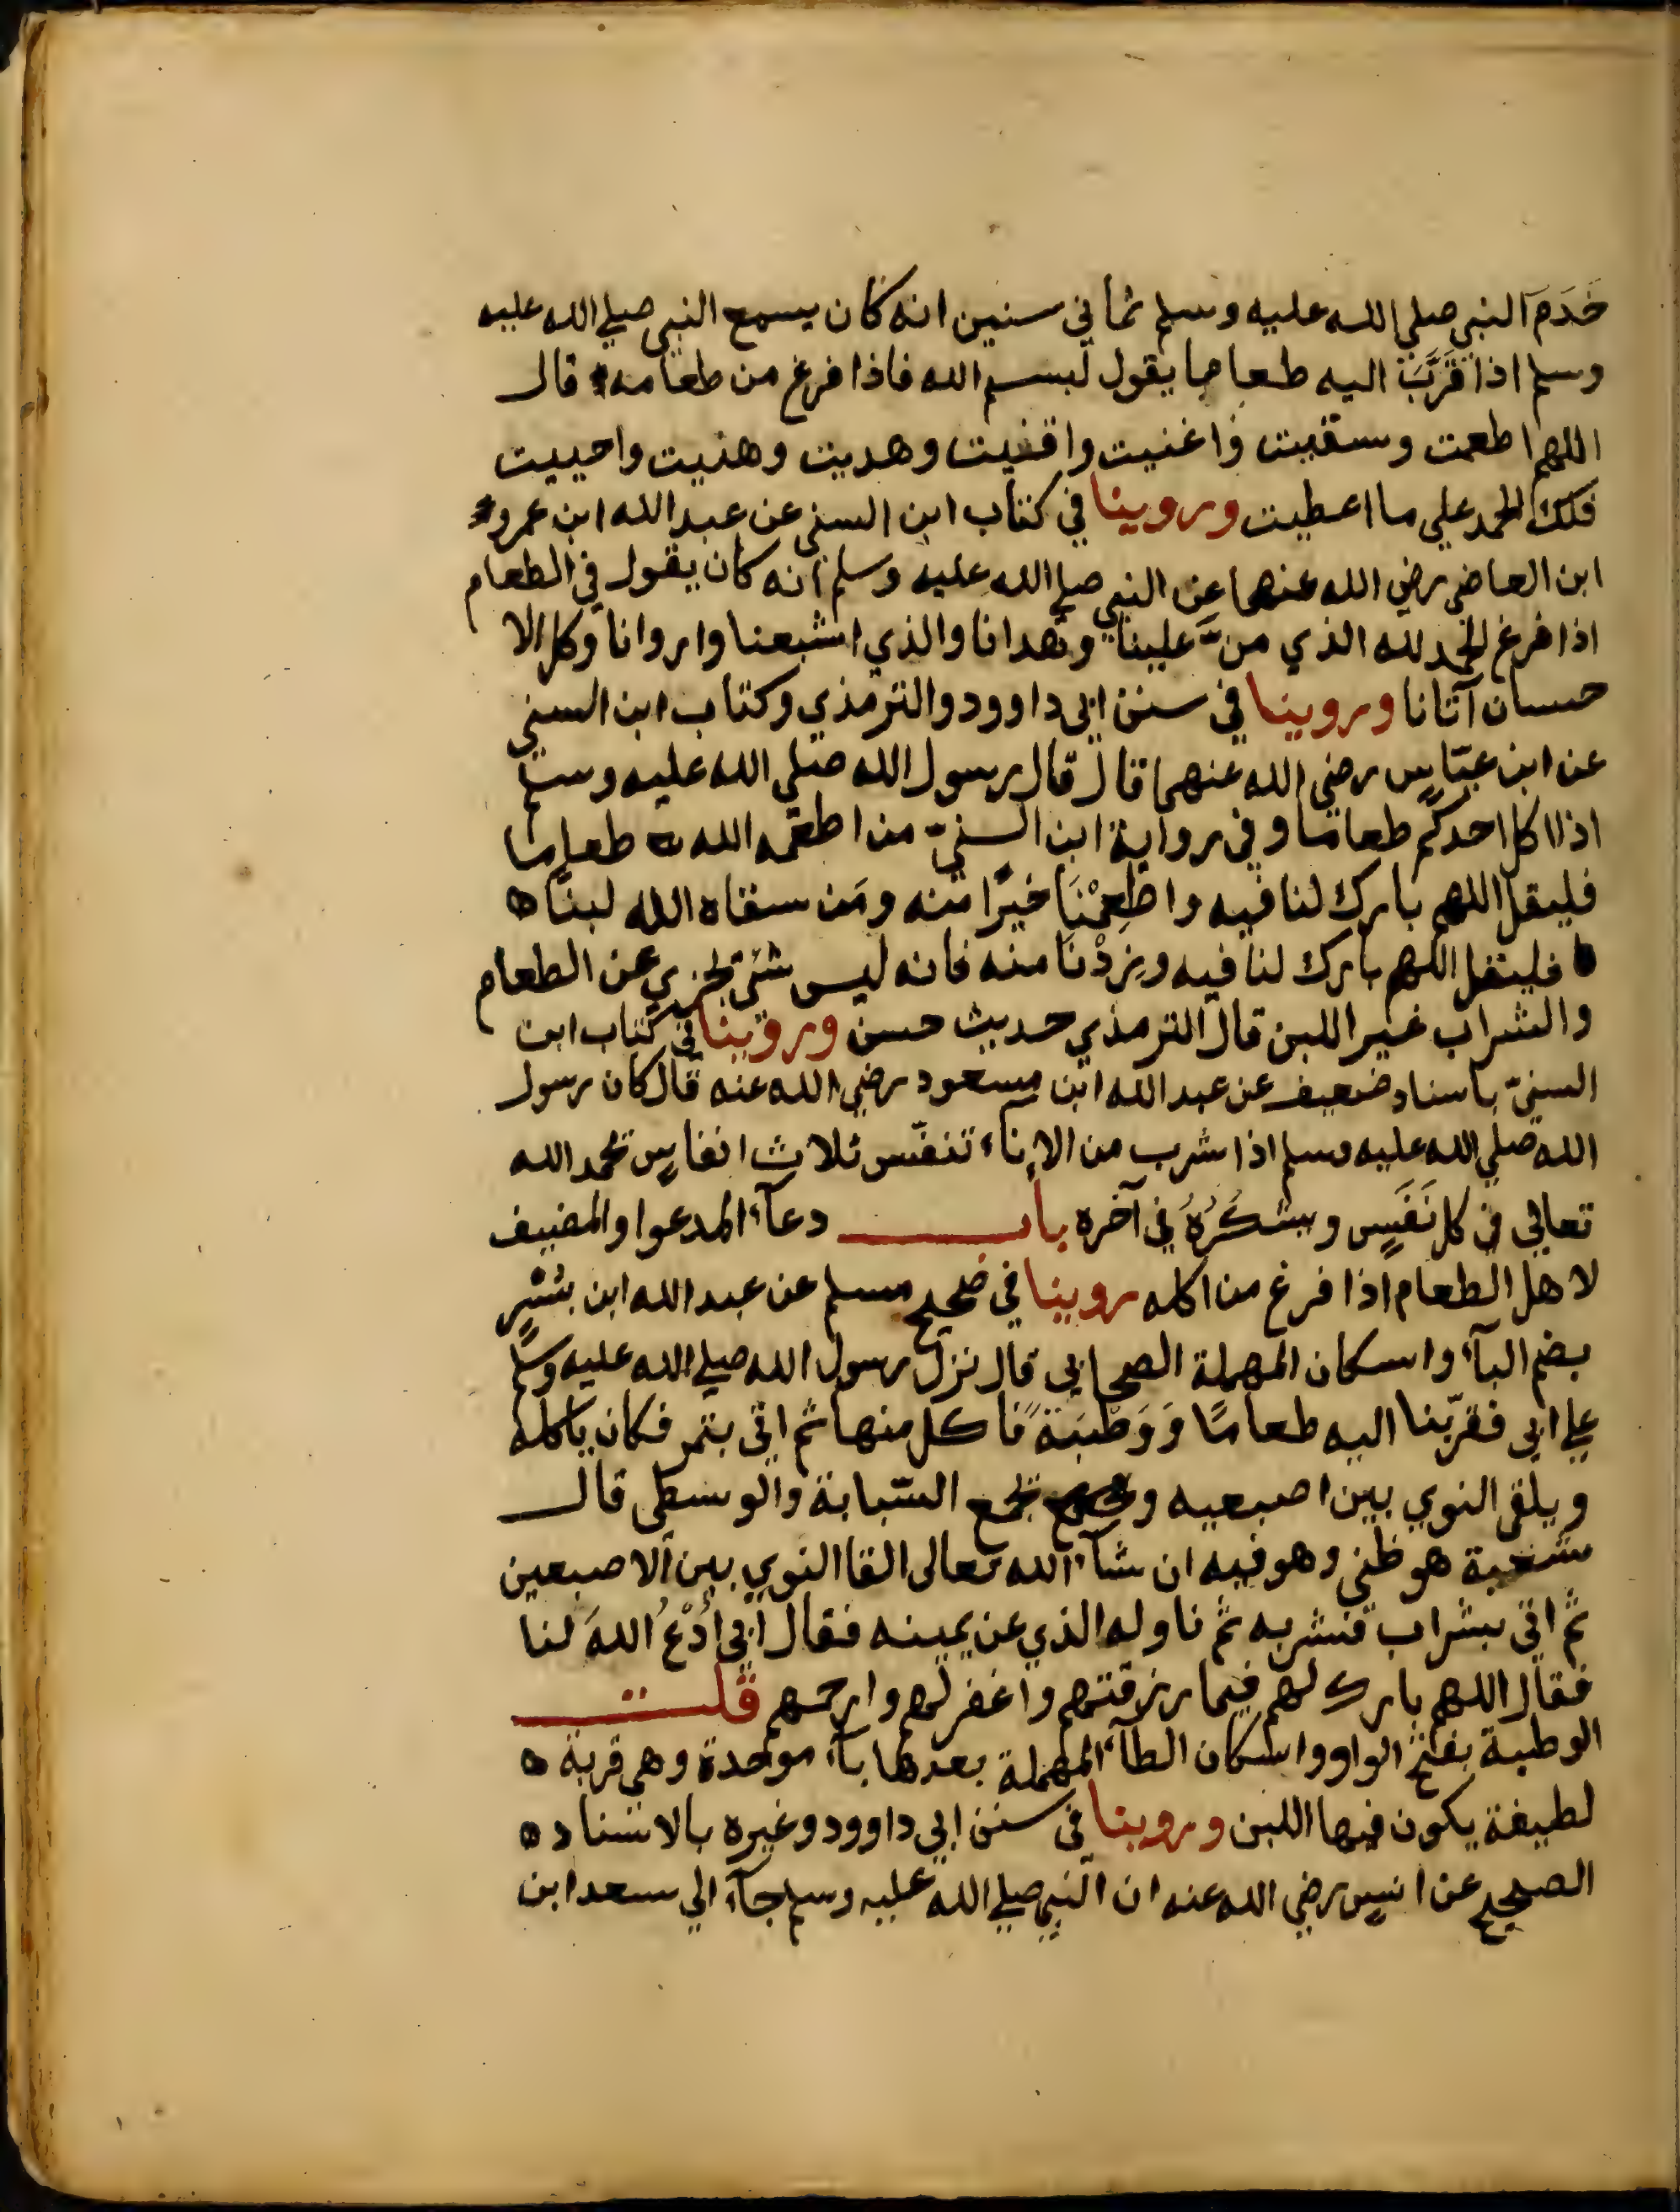 خَدَمَ النبي صلى الله عليه وسلم ثماني سنين انه كان يسمع النبي صلي الله عليه
وسلم اذا قَرَّبَ اليه طعاما يقول لبسم الله فاذا فرغ من طعامه قال
اللهم اطعمت وسقيت واغنيت واقنيت وهديت وهنيت واحييت
فلك الحمد علي ما اعطيت وروينا في كتاب ابن السني عن عبد الله ابن عمرو
ابن العاضي رضي الله عنهما عن النبي صلي الله عليه وسلم انه كان يقول في الطعام
اذا فرغ الحمد لله الذي منَّ علينا وهدانا والذي اشبعنا واروانا وكل الا
حسان آتانا وروينا في سنن ابي داوود والترمذي وكتاب ابن السني
عن ابن عبّاس رضي الله عنهما قال قال رسول الله صلي الله عليه وسلم
اذا اكل احدكم طعاما وفي رواية ابن السنيّ من اطعمه الله طعاما
فليقل اللهم بارك لنا فيه واطعِمْنَا خيرًا منه ومَن سقاه الله لبنًا ه
فليقل اللهم بارك لنا فيه وزِدْنَا منه فانه ليس شئ يجزي عن الطعام
والشراب غير اللبن قال الترمذي حديث حسن وروينا في كتاب ابن
السنيّ باسناد ضعيف عن عبد الله ابن مسعود رضي الله عنه قال كان رسول
الله صلي الله عليه وسلم اذا شرب من الاناء تنفّس ثلاث انفاسٍ يحمد الله
تعالي في كل نَفَسٍ ويشكُرُهُ في آخره باب دعآء المدعوا والمضيف
لاهل الطعام اذا فرغ من اكله روينا في صحيح مسلم عن عبد الله ابن بُسْرٍ
بضم البآء واسكان المهملة الصحابي قال نزل رسول الله صلي الله عليه وسلم
علي ابي فقرّبنا اليه طعامًا وَوَطْبَةً فاكل منها ثم اتي بتمر فكان ياكله
ويلقي النوي بين اصبعيه ويجمع السّبابة والوسطي قال
شعبة هو ظني وهو فيه ان شآء الله تعالى القا النوي بين الاصبعين
ثم اتي بشراب فشربه ثم ناوله الذي عن يمينه فقال ابي اُدْعُ اللهَ لنا
فقال اللهم بارك لهم فيما رزقتهم واغفر لهم وارحمهم قلت
الوطبة بفتح الواو واسكان الطآء المهملة بعدها بآء موحدة وهي قربة ه
لطيفة يكون فيها اللبن وروينا في سنن ابي داوود وغيره بالاسناد ه
الصحيح عن انس رضي الله عنه ان النبي صلي الله عليه وسلم جآء الي سعد ابن